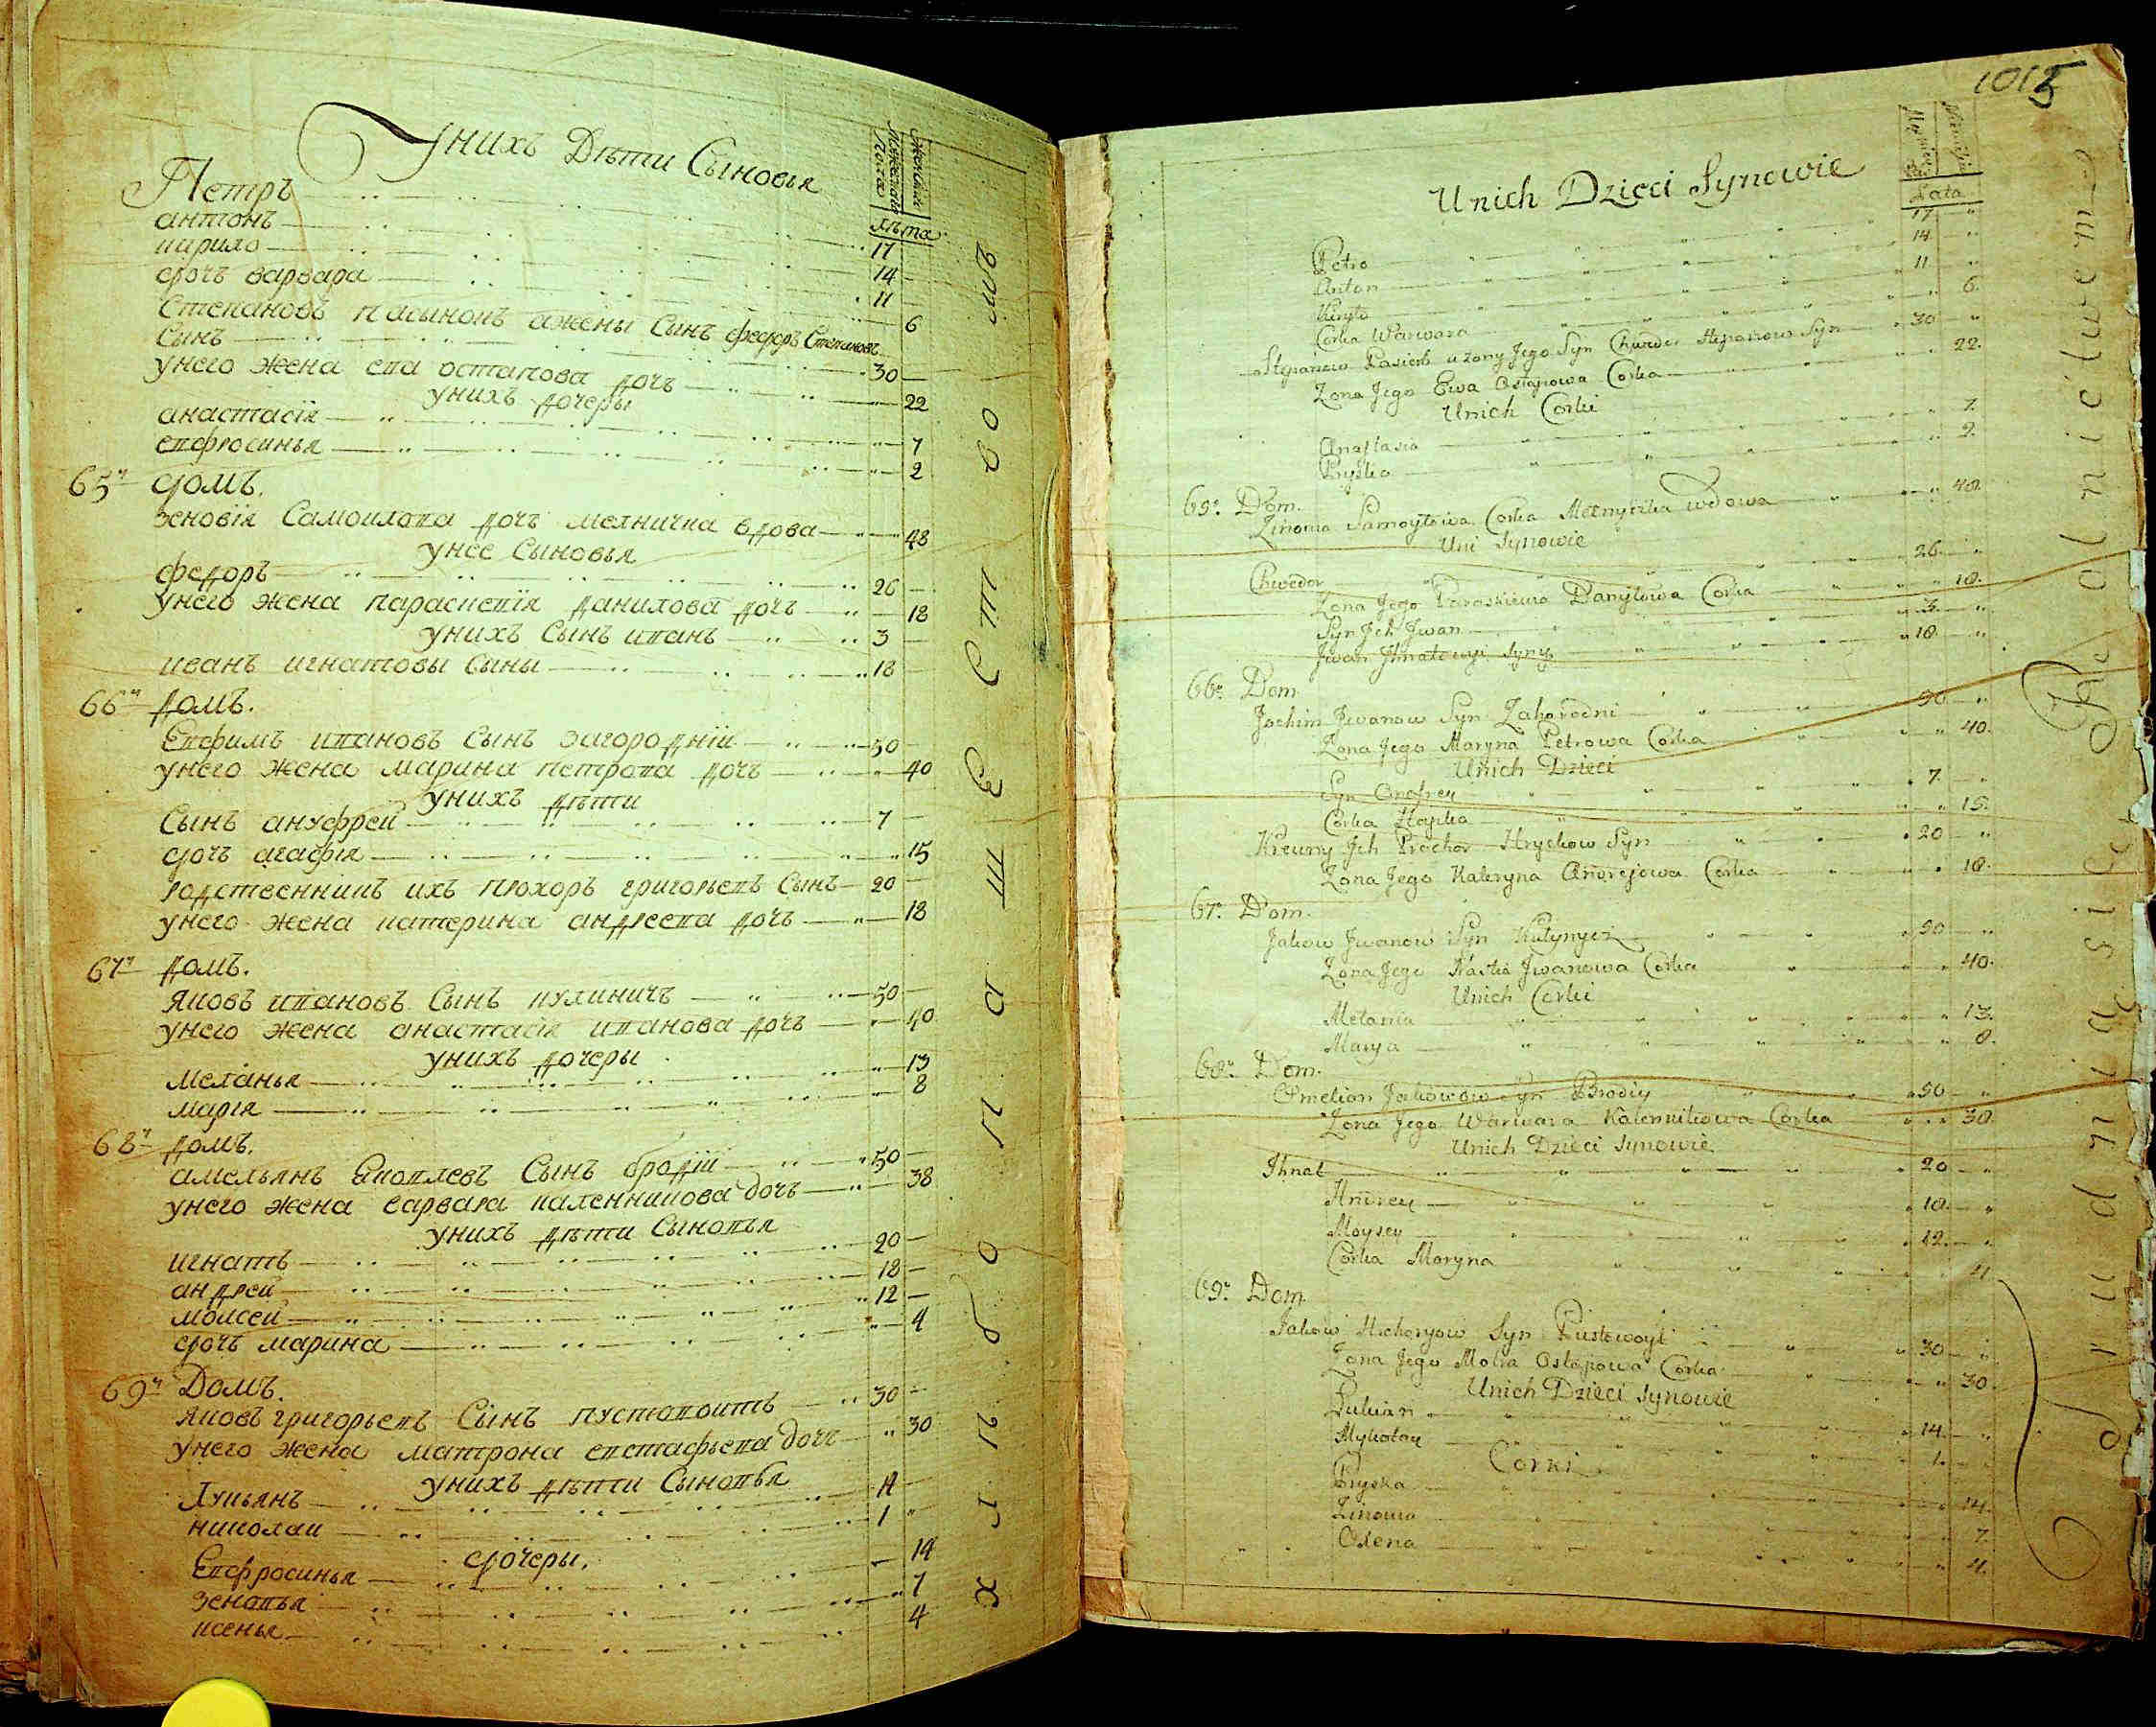 Унихъ Дѣти Сыновья
Женска
Мужеска
Пола
Лѣта
Петръ 17
антонъ 14
кирило 11
дочъ варвара 6
Степановъ пасынокъ ажены Сынъ федоръ Степановъ
Сынъ 30
унего жена ева остапова дочъ 22
унихъ дочеры
анастасія 7
евфросинья 2
65й домъ.
зеновія Самоилова дочъ мелничка вдова 48
унее Сыновья
федоръ 26
унего жена параскевія данилова дочъ 18
унихъ Сынъ иванъ 3
иванъ игнатовы Сыны 18
66й домъ.
Евфимъ ивановъ Сынъ загородній 50
унего жена марина петрова дочъ 40
унихъ дѣти
Сынъ ануфрей 7
дочъ агафія 15
родственникъ ихъ прохоръ григорьевъ Сынъ 20
унего жена катерина андреева дочъ 18
67й домъ.
яковъ ивановъ Сынъ кулиничъ 50
унего жена анастасія иванова дочъ 40
унихъ дочеры
меланья 13
марія 8
68й домъ.
амельянъ яковлевъ Сынъ бродій 50
унего жена варвара каленникова дочъ 38
унихъ дѣти Сыновья
игнатъ 20
андрей 18
моисей 12
дочъ марина 4
69й Домъ.
яковъ григорьевъ Сынъ пустовоитъ 30
унего жена матрона евстафьева дочъ 30
унихъ дѣти Сыновья
Лукьянъ 14
николай 1
дочеры.
Евфросинья 14
зеновья 7
ксенья 4
1015
Unich Dzieci Synowie
Lata
Petro 17
Anton 14
Kiryło 11
Corka Warwara 6.
Stepanow Pasierb użony Jego Syn Chwedor Stepanow Syn 30
Żona Jego Ewa Ostapowa Corka 22.
Unich Corki
Anastasia 7.
Pryśka 2.
65. Dom.
Zinowia Samoyłowa Corka Melnyczka wdowa 48.
Uni Synowie
Chwedor 26.
Żona Jego Paraskiewia Danyłowa Corka 18.
Syn Jch Jwan 3.
Jwan Jhnatowyi Syny 18.
66. Dom
Jochim Jwanow Syn Zahorodni 50
Żona Jego Maryna Petrowa Corka 40.
Unich Dzieci
Syn Onofrey 7.
Corka Hapka 15.
Krewny Jch Prochor Hryckow Syn 20
Żona Jego Kateryna Andrejowa Corka 18.
67. Dom.
Jakow Jwanow Syn Kulynycz 50
Żona Jego Nastia Jwanowa Corka 40.
Unich Corki
Melania 13.
Marya 8.
68. Dom.
Omelion Jakowow Syn Brodiy 50
Żona Jego Warwara Kalennikowa Corka 38.
Unich Dzieci Synowie
Jhnat 20
Andrey 18.
Moysey 12.
Corka Maryna 4.
69. Dom.
Jakow Hrehoryow Syn Pustowoyt 30
Żona Jego Motra Ostapowa Corka 30.
Unich Dzieci Synowie
Lukian 14.
Mykołay 1.
Corki
Pryska 14.
Zinowia 7.
Oxena 4.